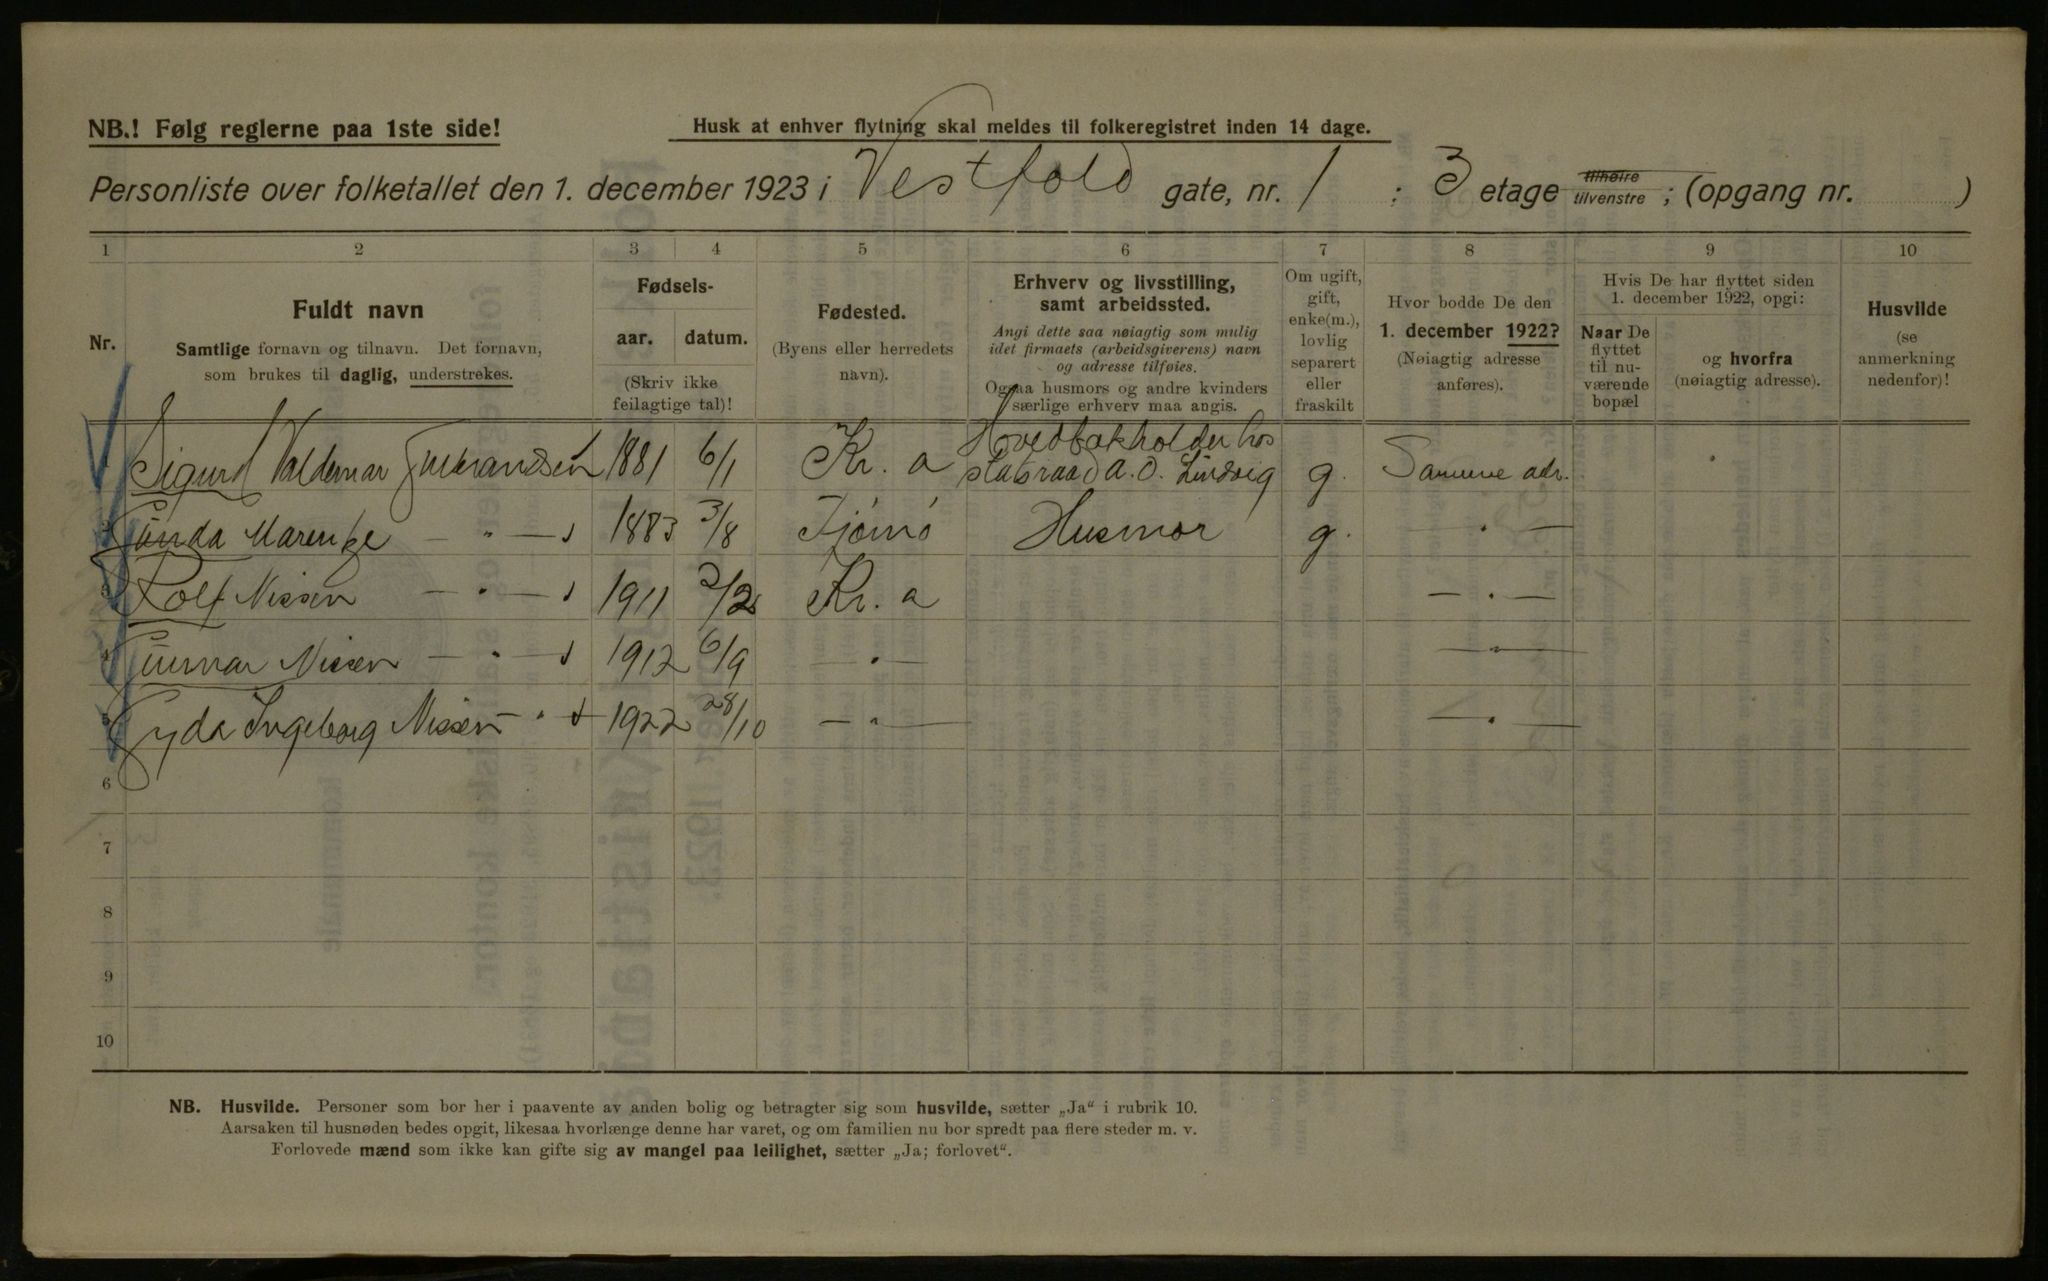 NB.! Følg reglerne paa 1ste side!
Husk at enhver flytning skal meldes til folkeregistret inden 14 dage.
Personliste over folketallet den 1. december 1923 i Vestfold gate, nr. 1 : 3 etage tilhøire tilvenstre ; (opgang nr. )
1 2 3 4 5 6 7 8 9 10
Nr.
Fuldt navn
Samtlige fornavn og tilnavn. Det fornavn,
som brukes til daglig, understrekes.
Fødsels-
aar. datum.
(Skriv ikke
feilagtige tal)!
Fødested.
(Byens eller herredets
navn).
Erhverv og livsstilling,
samt arbeidssted.
Angi dette saa nøiagtig som mulig
idet firmaets (arbeidsgiverens) navn
og adresse tilføies.
Ogsaa husmors og andre kvinders
særlige erhverv maa angis.
Om ugift,
gift,
enke(m.),
lovlig
separert
eller
fraskilt
Hvor bodde De den
1. december 1922?
(Nøiagtig adresse
anføres).
Hvis De har flyttet siden
1. december 1922, opgi:
Naar De
flyttet
til nu-
værende
bopæl
og hvorfra
(nøiagtig adresse).
Husvilde
(se
anmerkning
nedenfor)!
Hovedbokholder hos
1 Sigurd Valdemar 1881 6/1 Kr. a statsraad A. O. Lindvig g. Samme adr.
2 Marenke — " — 1883 3/8 Tjømø Husmor g. — " —
3 Rolf Nissen — " — 1911 Kr. a — " —
4 Gunnar Nissen — " — 1912 6/9 — " — — " —
5 Gyda Ingeborg Nissen — " — 1922 28/10 — " — — " —
6
7
8
9
10
NB. Husvilde. Personer som bor her i paavente av anden bolig og betragter sig som husvilde, sætter „Ja“ i rubrik 10.
Aarsaken til husnøden bedes opgit, likesaa hvorlænge denne har varet, og om familien nu bor spredt paa flere steder m. v.
Forlovede mænd som ikke kan gifte sig av mangel paa leilighet, sætter „Ja; forlovet“.